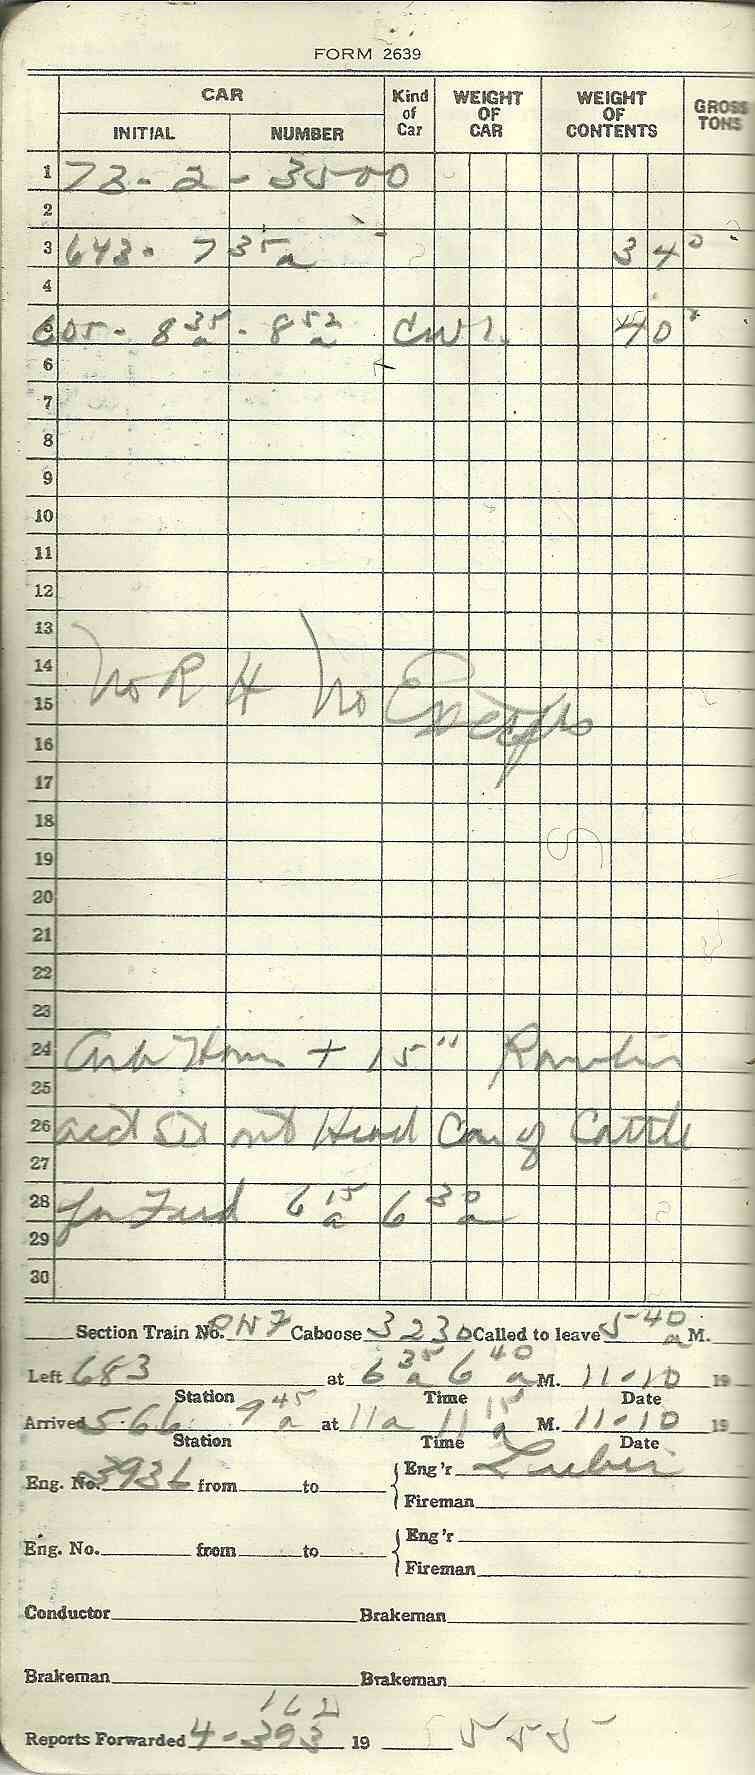 FORM 2639
CAR Kind of Car WEIGHT OF CAR WEIGHT OF CONTENTS GROSS TONS
INITIAL NUMBER
1 73 - 2 - 3500
2
3 643 - 7 35 a 34 0
4
5 605 - 8 35 a - 8 52 a CW 40
6
7
8
9
10
11
12
13
14 No R H No
15
16
17
18
19
20
21
22
23
24 + 15"
25
26 Set out Head Car of Cattle
27
28 for Feed 6 15 a 6 30 a
29
30
Section Train No. Caboose 3230 Called to leave 5 40 a M.
Left 683 at 6 35 a 6 40 a M. 11-10 19
Station Time Date
Arrived 566 9 45 a at 11 a 11 15 a M. 11-10 19
Station Time Date
Eng. No. from to Eng'r
Fireman
Eng. No. from to Eng'r
Fireman
Conductor Brakeman
Brakeman Brakeman
Reports Forwarded 4-393 19 555